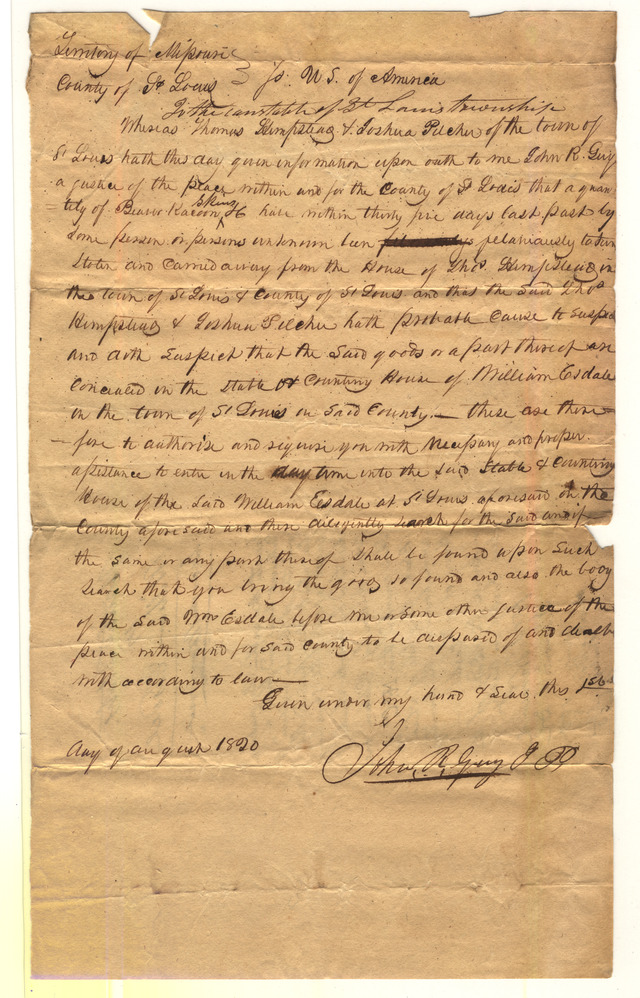 Territory of Missouri
County of St Louis } Js. U S. of America
To the constable of St Louis township
Whereas Thomas Hempstead & Joshua Pilcher of the town of
St Louis hath this day given information upon oath to me John R. Guy
a justice of the peace within and for the County of St Louis that a quan
tity of Beaver Racoon skins &c have within thirty five days last past by
some person or persons unknown been felariously taken
stolen and carried away from the House of Thos Hempstead in
the town of St Louis & County of St Louis and that the said Thos
Hempstead & Joshua Pilcher hath probable cause to suspect
and doth suspect that the said goods or a part thereof are
concealed in the Stable or Counting House of William Esdale
in the town of St Louis in said County. — these are there
– fore to authorise and require you with necessary and proper
assistance to enter in the day time into the said Stable & Counting
House of the said William Esdale at St Louis aforesaid in the
County aforesaid and there diligently search for the said and if
the same or any part thereof shall be found upon such
search that you bring the goods so found and also the body
of the said Wm Esdale before me or some other justice of the
peace within and for said County to be disposed of and dealt
with according to law —
Given under my hand & seal this 1st
day of august 1820
John R. Guy J P